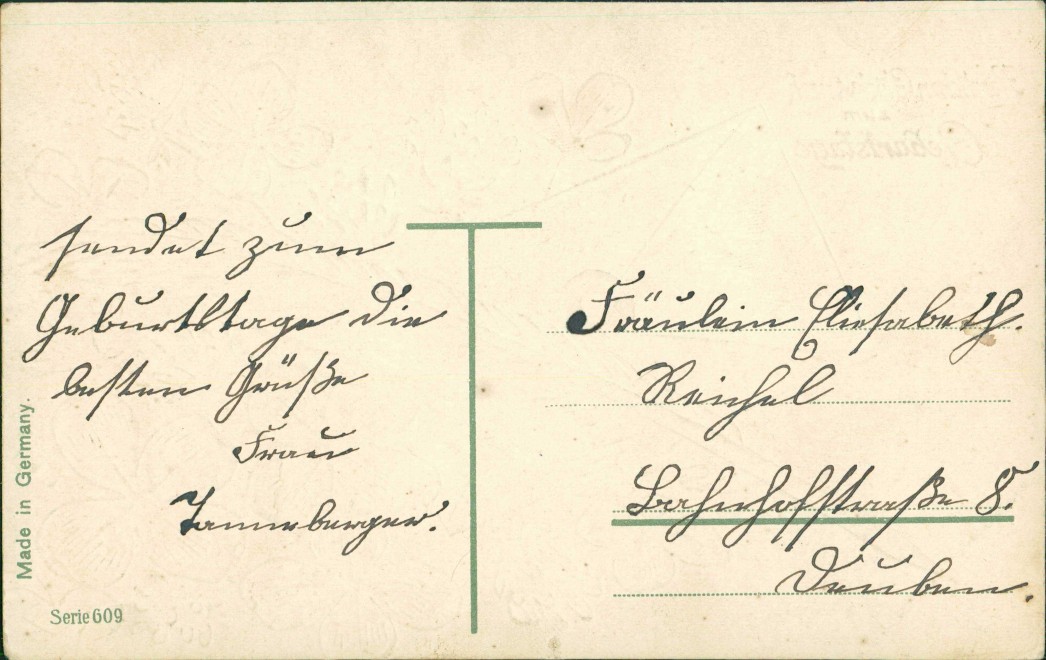 sendet zum
Geburtstage die
besten Grüße
Frau
Tannenberger.
Fräulein Eliesabeth
Reichel
Bahnhofstraße 8.
Deuben.
Made in Germany.
Serie 609